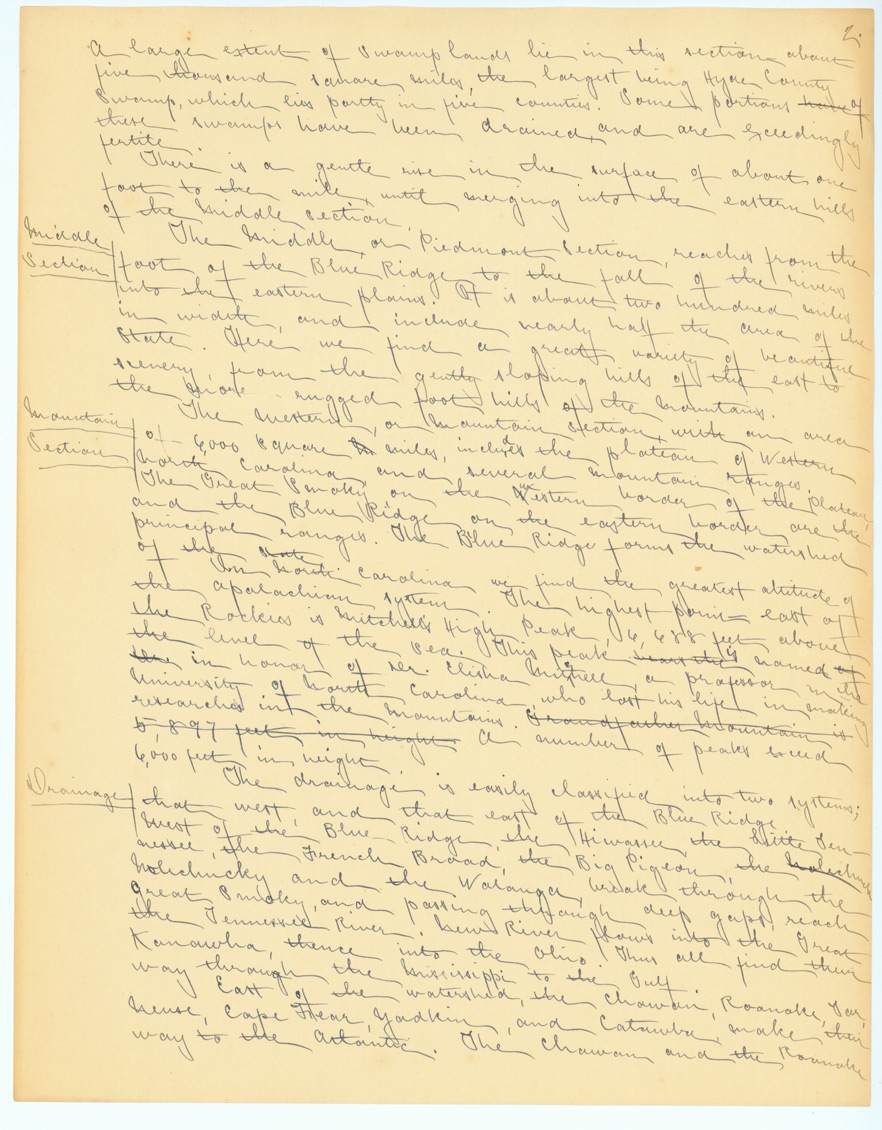 2.
A large extent of swamp lands lie in this section about
five thousand square miles, the largest being Hyde County
Swamp, which lies partly in five counties. Some portions have of
these swamps have been drained, and are exceedingly
fertile.
There is a gentle rise in the surface of about one
foot to the mile, until merging into the eastern hills
of the Middle Section.
Middle
Section
The Middle, or Piedmont Section, reaches from the
foot of the Blue Ridge to the fall of the rivers
into the eastern plains. It is about two hundred miles
in width, and include nearly half the area of the
State. Here we find a great variety of beautiful
scenery, from the gently sloping hills of the east to
the more rugged foot hills of the mountains.
Mountain
Section
The Western, or Mountain Section, with an area
of 6,000 square miles, includes the plateau of Western
North Carolina, and several mountain ranges.
The Great Smoky, on the Western border of the plateau,
and the Blue Ridge on the eastern border are the
principal ranges. The Blue Ridge forms the watershed
of the State.
In North Carolina we find the greatest altitude of
the Apalachian system. The highest point east of
the Rockies is Mitchell's High Peak, 6,688 feet above
the level of the sea. This peak is named
in honor of Dr. Elisha Mitchell, a professor in the
University of North Carolina, who lost his life in making
researches in the mountains. Grandfather Mountain is
5,897 feet in height A number of peaks exceed
6,000 feet in height.
Drainage
The drainage is easily classified into two systems;
that west, and that east of the Blue Ridge.
West of the Blue-Ridge, the Hiwassee, the Little Ten-
nessee, the French Broad, the Big Pigeon, the
Nolichucky and the Watanga, break through the
Great Smoky, and passing through deep gaps, reach
the Tennessee River. New River flows into the Great
Kanawha, thence into the Ohio. Thus all find their
way through the Mississippi to the Gulf.
East of the watershed, the Chowan, Roanoke, Tar,
Neuse, Cape Fear, Yadkin, and Catawba, make their
way to the Atlantic. The Chowan and the Roanoke